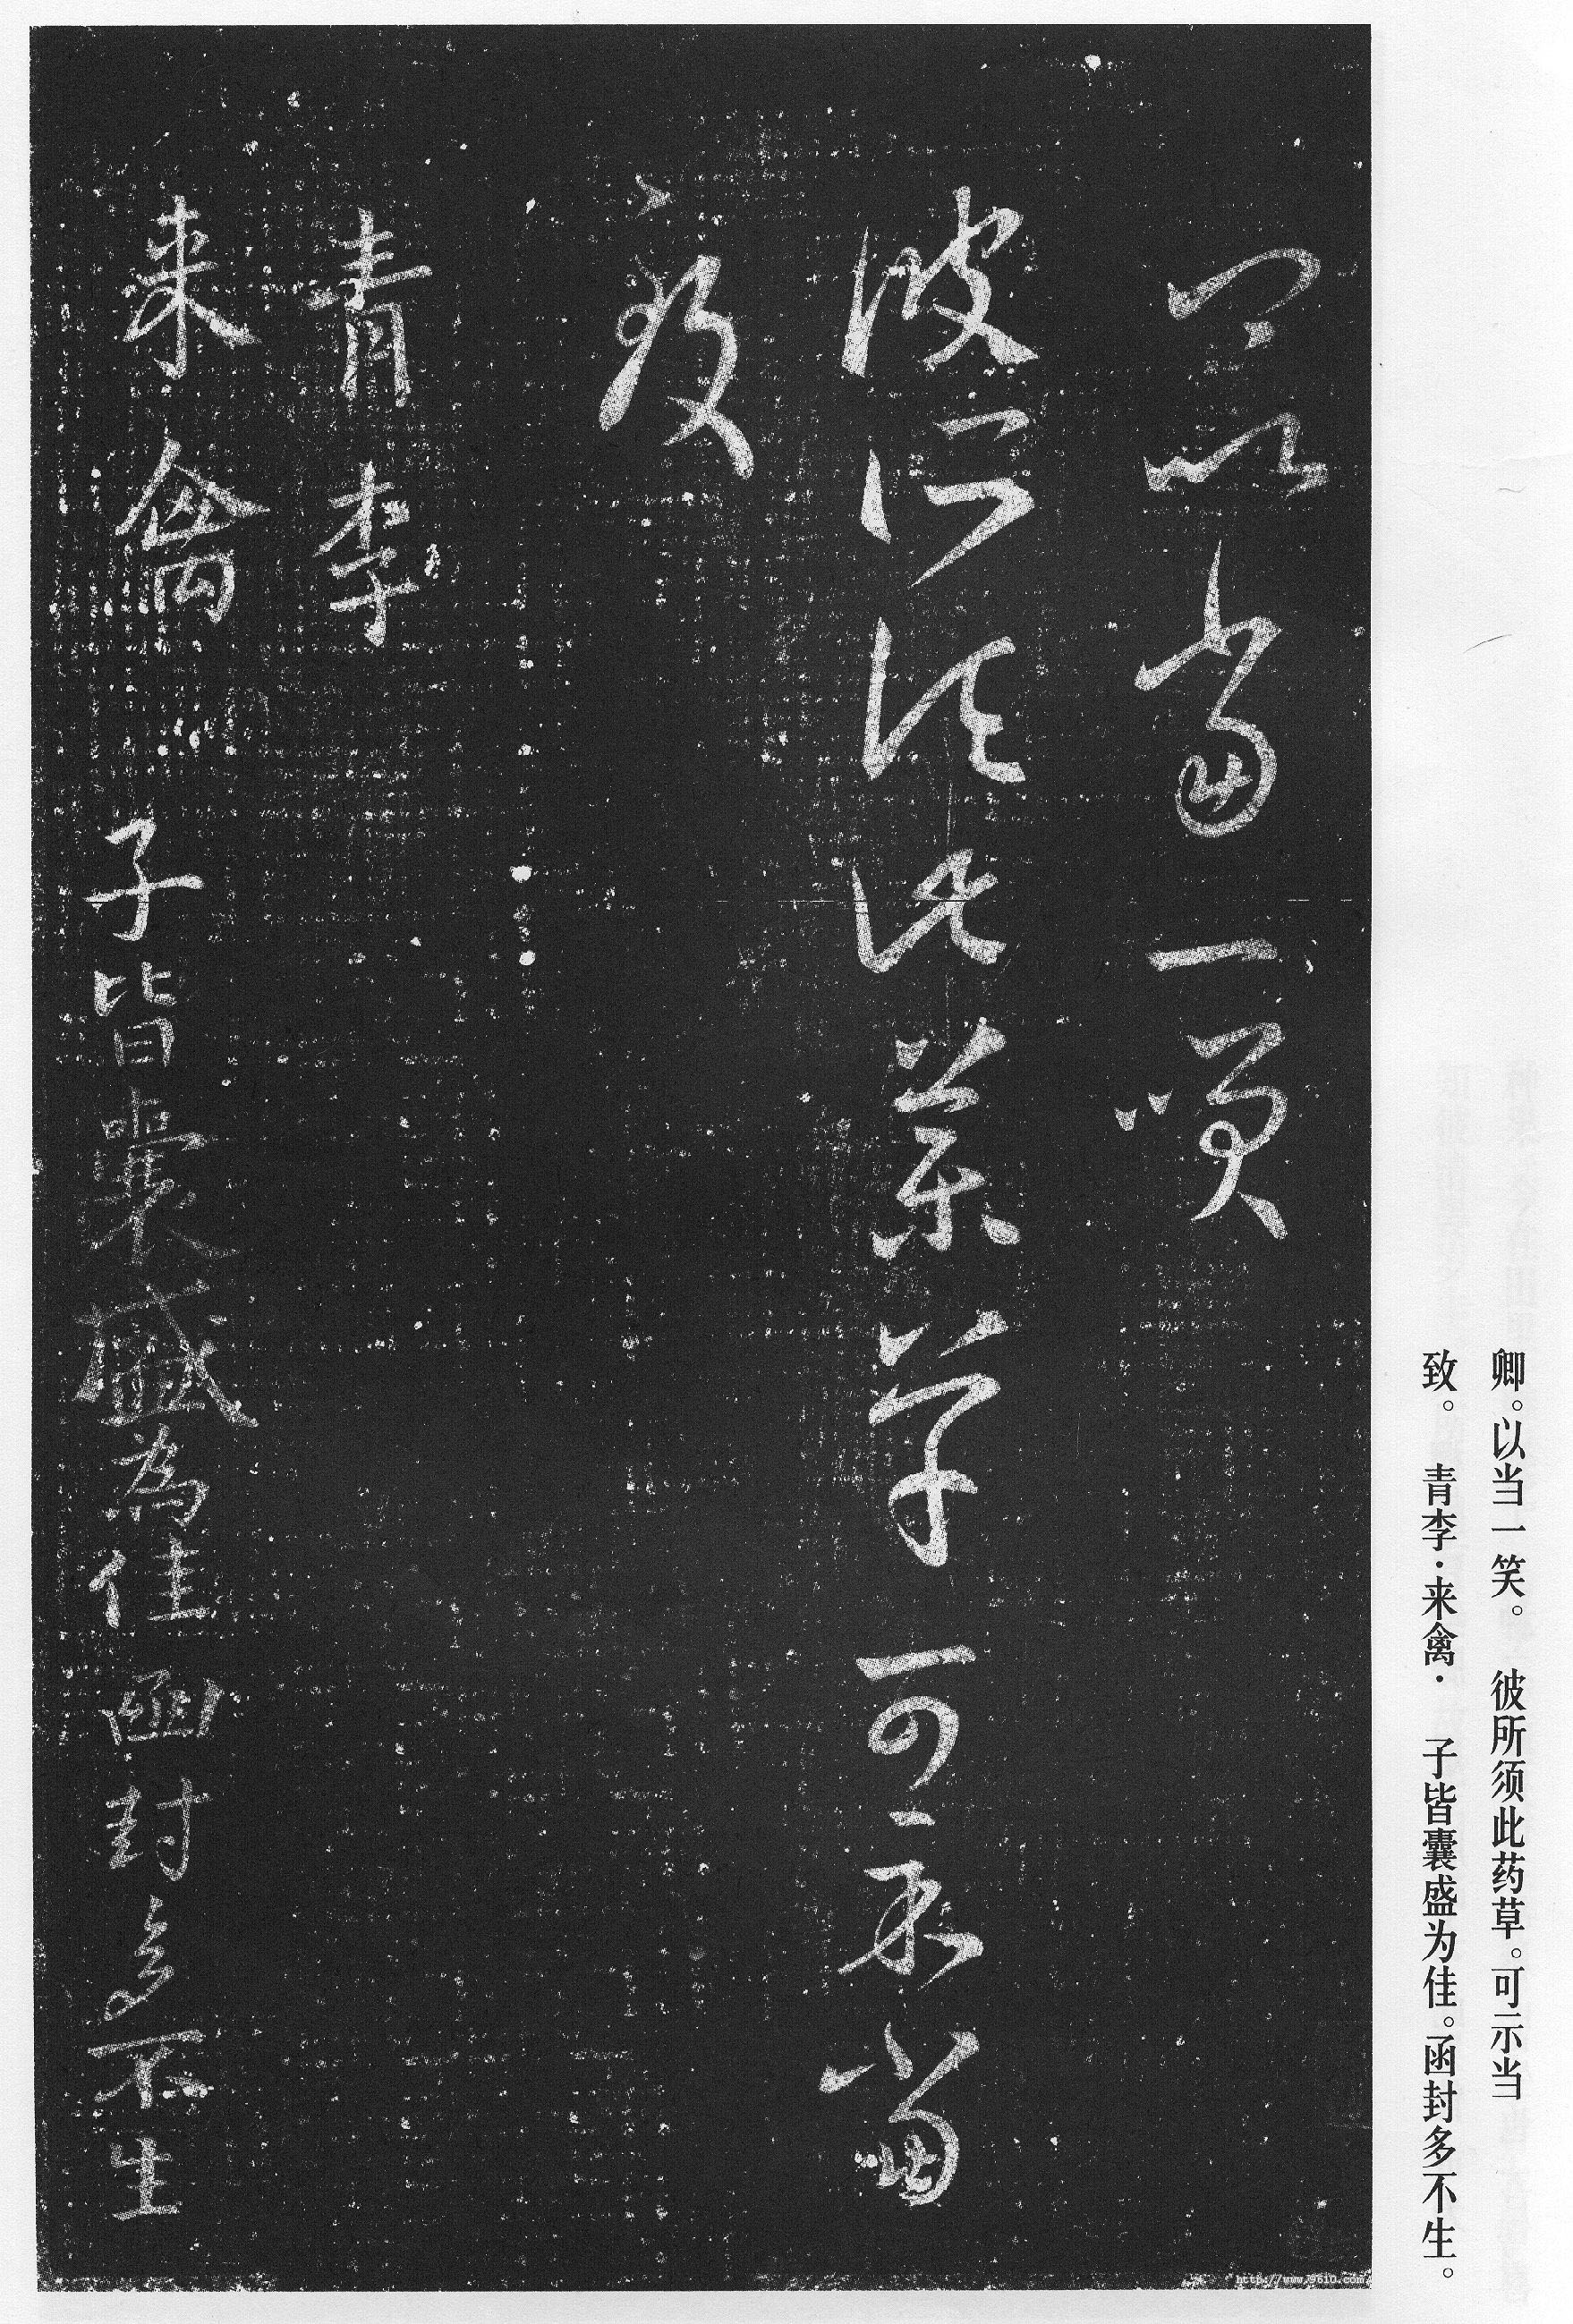 卿。以当一笑。 彼所须此药草。可示当
致。 青李·来禽· 子皆囊盛为佳。函封多不生。
卿以當一笑
彼所須此藥草可示當
致
青李
来禽 子皆囊盛為佳函封多不生
http://www.9610.com